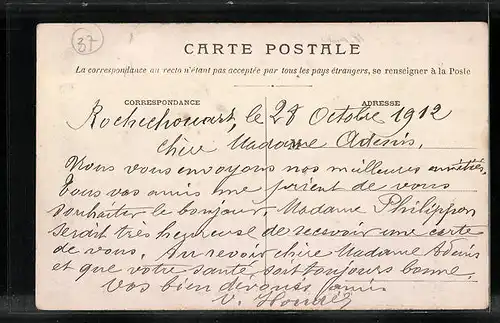 37
CARTE POSTALE
La correspondance au recto n'étant pas acceptée par tous les pays étrangers, se renseigner à la Poste
CORRESPONDANCE
ADRESSE
Rochechouart, le 28 Octobre 1912
Chère Madame Adenis,
Nous vous envoyons nos meilleures amitiés.
Tous vos amis me prient de vous
souhaiter le bonjour, Madame Philippon
serait très heureuse de recevoir une carte
de vous. Au revoir chère Madame Adenis
et que votre santé soit toujours bonne.
Vos bien dévoués amis
V.